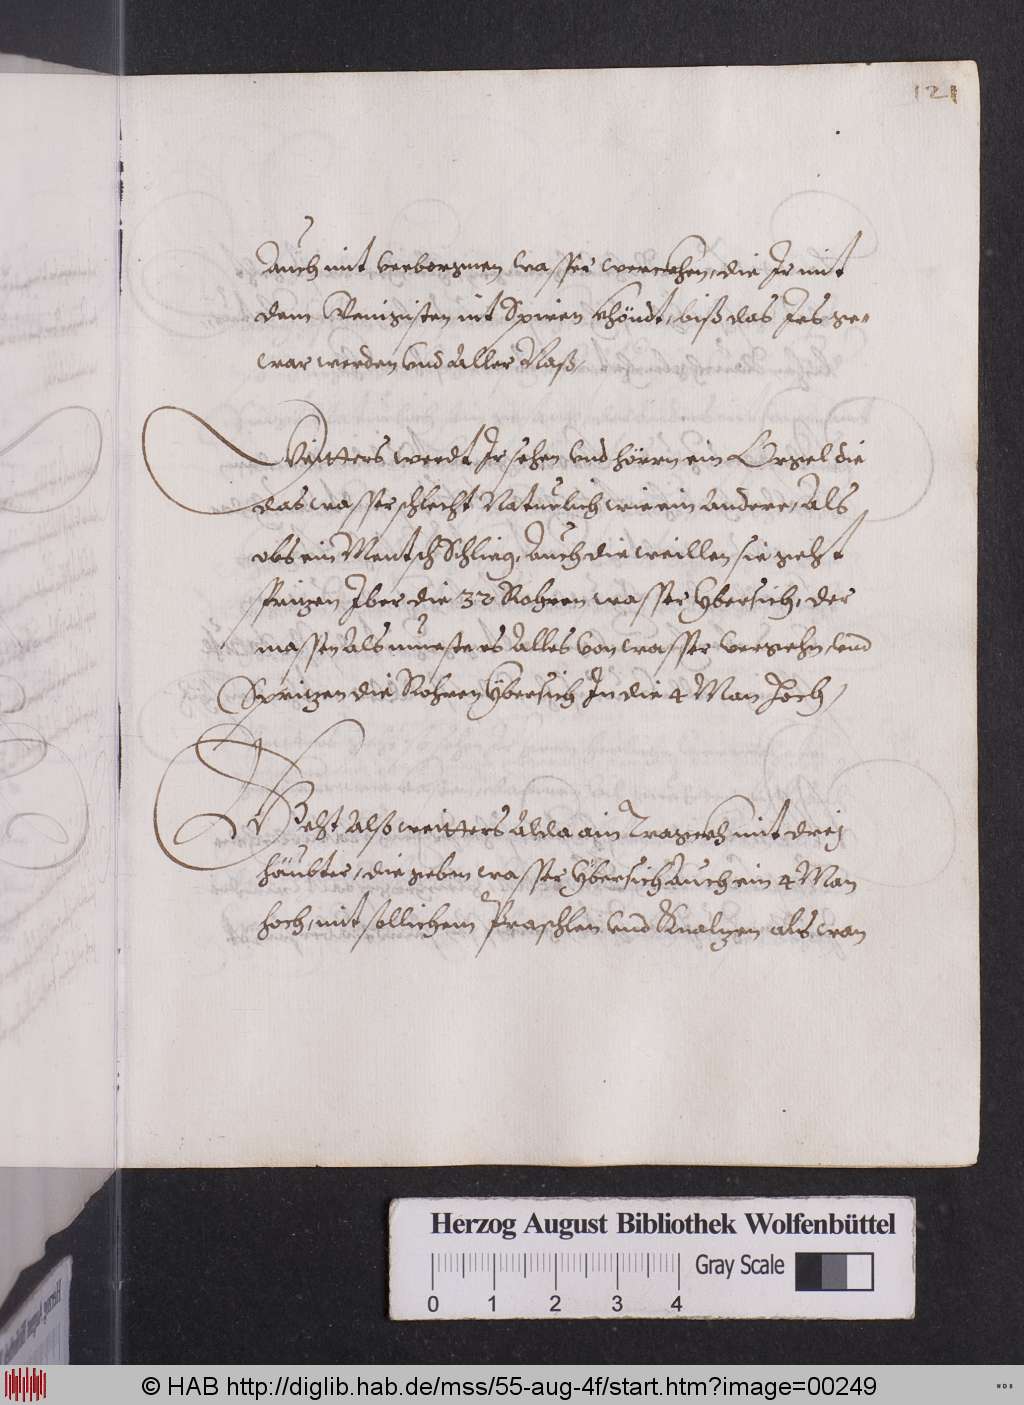 121
Auch mit verborgnen wasser werckhen, die Ir mit
dem Wenigisten nit Spiren khöndt, biß das Irs ge-
war werden vnd Aller Naß,
Weitters werdt Ir sehen vnd hörrn ein Orgel die
das wasser schlecht Natürlich wie ein Andere, Als
obs ein Mentsch Schlieg, Auch die weillen sie geht
sprizen Iber die 30 Rohren wasser Ybersich, der
massen Als miiests es Alles von wasser vergehn, vnd
Sprizen die Rohren Ybersich In die 4 Man Hoch,
Geht Alß weitters Alda ain Trackh mit dreÿ
häubter, die geben wasser Ybersich Auch ein 4 Man
hoch, mit sollichem Praschlen vnd Knalzen als wan
Herzog August Bibliothek Wolfenbüttel
Gray Scale
0 1 2 3 4
© HAB http://diglib.hab.de/mss/55-aug-4f/start.htm?image=00249